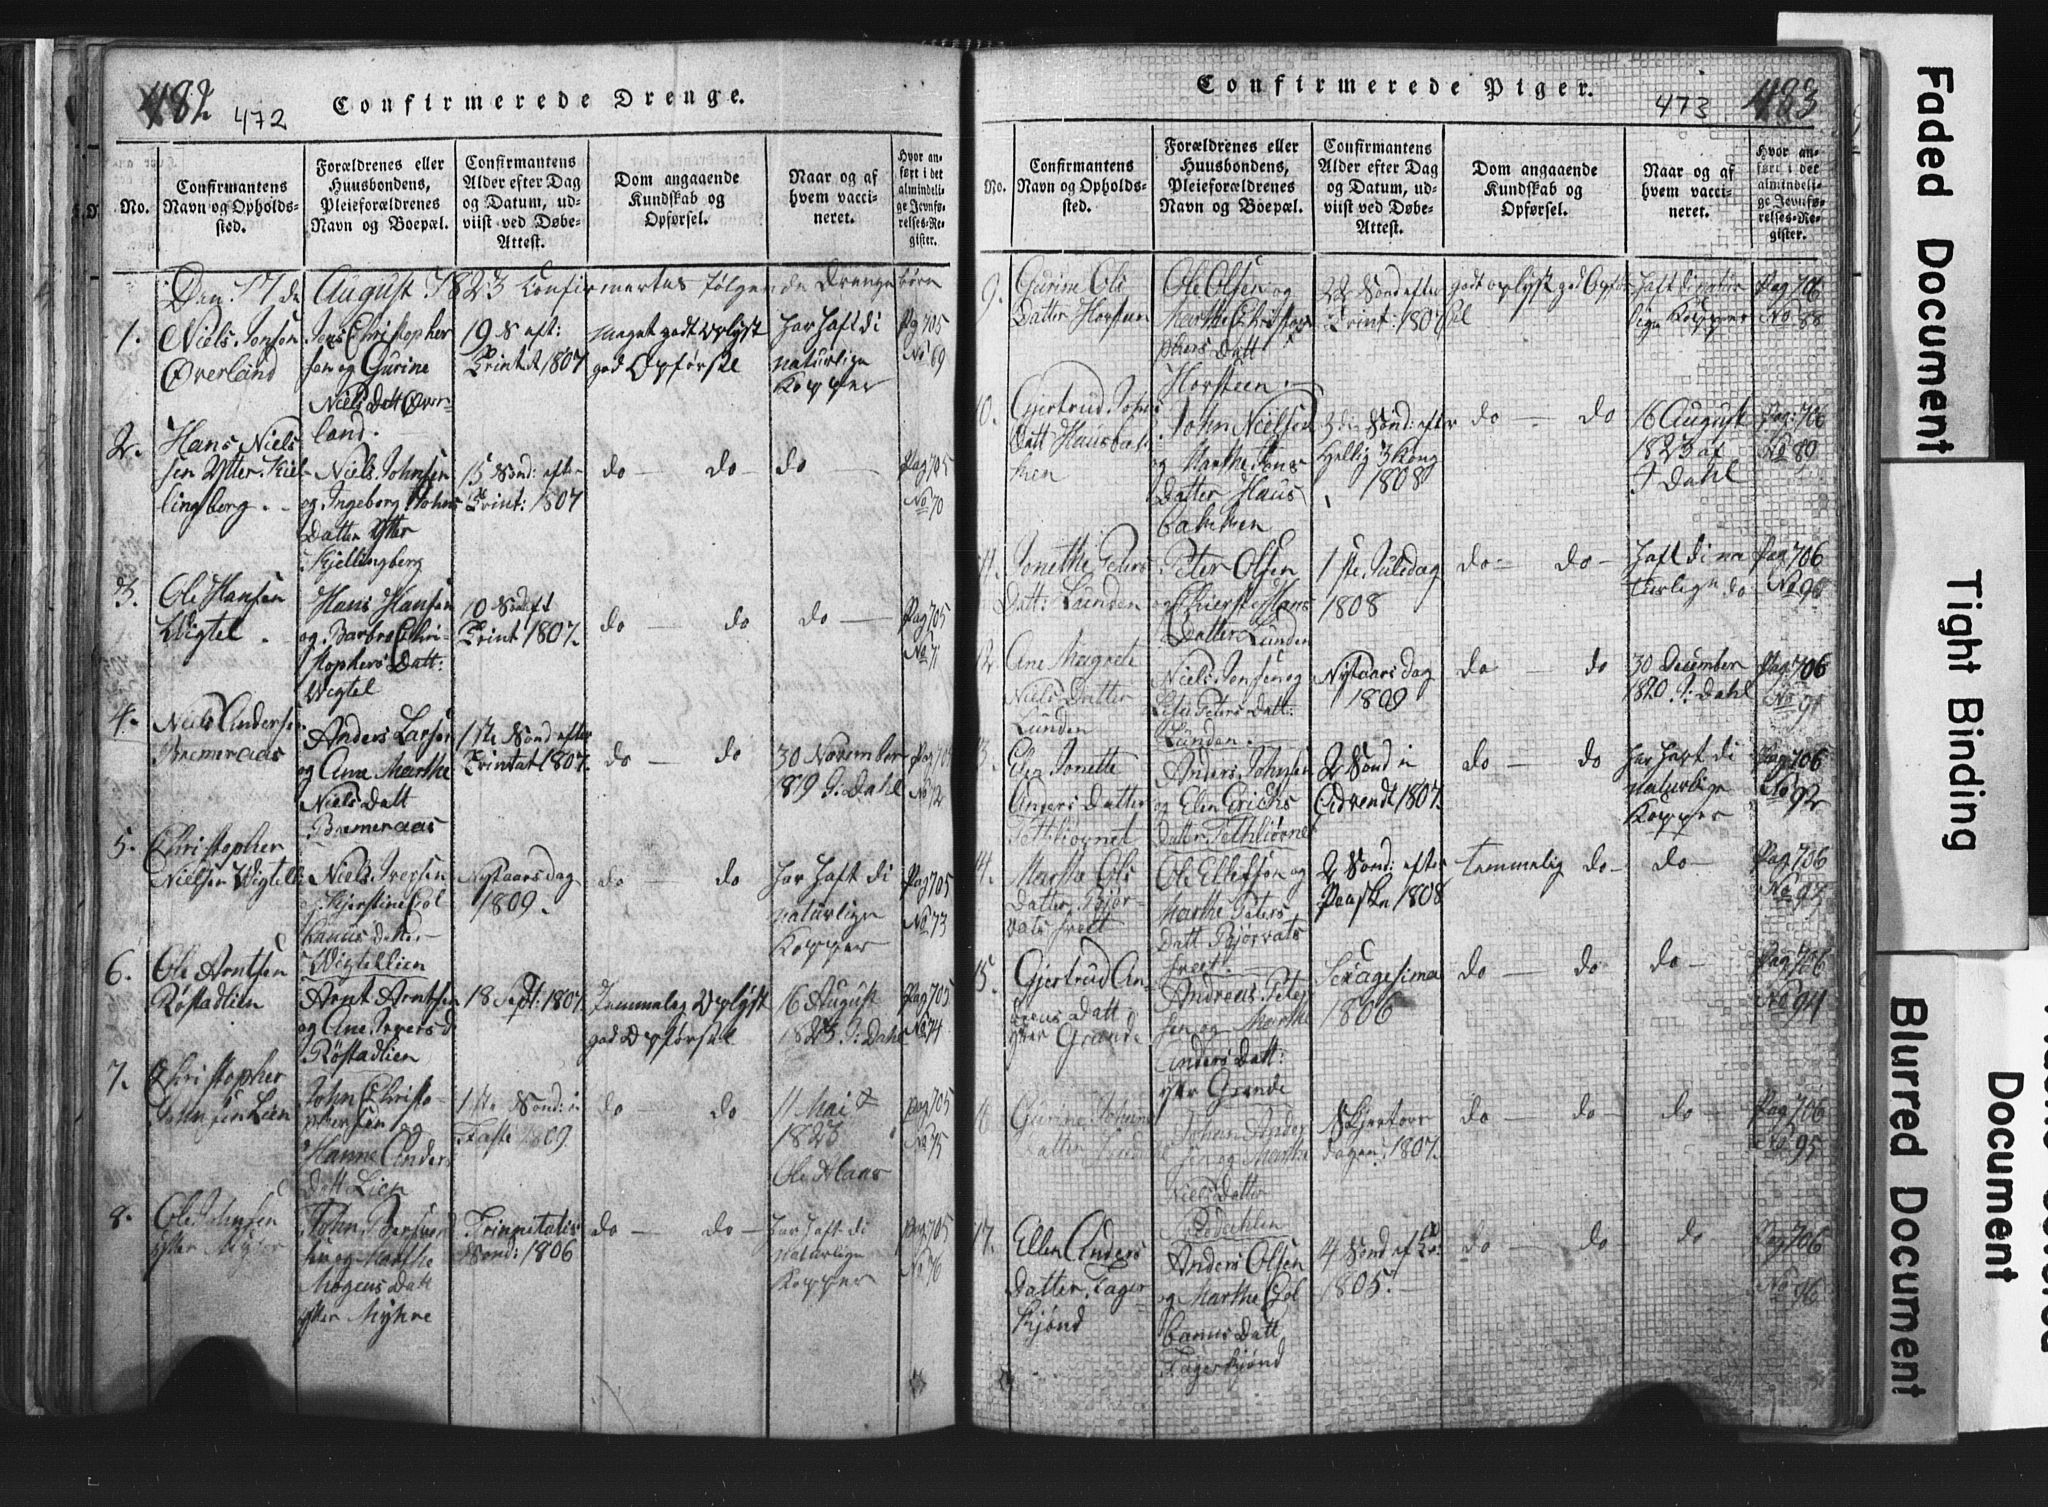 482
472
Confirmerede Drenge.
No.
Confirmantens
Navn og Opholds-
sted.
Forældrenes eller
Huusbondens,
Pleieforældrenes
Navn og Boepæl.
Confirmantens
Alder efter Dag
og Datum, ud-
viist ved Døbe-
Attest.
Dom angaaende
Kundskab og
Opførsel.
Naar og af
hvem vacci-
neret.
Hvor an-
ført i det
almindeli-
ge Jevnfø-
relses-Re-
gister.
Den 17 de August 1823 Confirmertes følgende Drengebørn
1.
Niels Jonsen
Øverland
Jens Christopher
sen og Gurine
Niels Datt Øver-
land.
19 S eft:
Trinit 1807
meget godt oplyst
god Opførsel
har haft di
naturlige
Kopper
Pag 705
No 69
2.
Hans Niels
sen Ytter Kiel
lingsberg
Niels Johnsen
og Ingeborg Johns
Datter Ytter
Kjellingberg
15 Sond: efter
Trint: 1807
do — do
do —
Pag 705
No 70
3.
Ole Hansen
Wigtel
Hans Hansen
og Barbro Chri-
stophers Datt:
Wigtel
10 Sond eft
Trint 1807.
do — do
do —
Pag 705
No 71
4.
Niels Anderse
Bremeraas
Anders Larsen
og Ane Marthe
Niels Datt
Bremeraas
1ste Sond efter
Trintat 1807.
do — do
30 November
1819 J: Dahl
Pag 705
No 72
5.
Christopher
Nielsen Wigtelli
Niels Iversen
Kjerstine Col
banus datter
Wigtellien
Nyttaarsdag
1809.
do — do
har haft di
naturlige
Kopper
Pag 705
No 73
6.
Ole Arntsen
Røstadlien
Arnt Arntsen
og Ane Ivers d
Røstadlien
18 Sept: 1807
Temmelig oplyst
god opførsel
16 August
1823 J: Dahl
Pag 705
No 74
7.
Christopher
Johnsen Lien
John Christo-
phersen og
Hanne Anders
Datt Lien
1ste Sond: i
Faste 1809
do — do
11 Mai
1823
Ole Haas
Pag 705
No 75
8.
Ole Johnsen
ytter Myhre
John
og Marthe
Mogens Datt
ytter Myhre
Trinnitatis
Sond: 1806
do — do —
har haft di
naturlige
Kopper
Pag 705
No 76
Confirmerede Piger.
473
483
No.
Confirmantens
Navn og Opholds-
sted.
Forældrenes eller
Huusbondens,
Pleieforældrenes
Navn og Boepæl.
Confirmantens
Alder efter Dag
og Datum, ud-
viist ved Døbe-
Attest.
Dom angaaende
Kundskab og
Opførsel.
Naar og af
hvem vacci-
neret.
Hvor an-
ført i det
almindeli-
ge Jevnfø-
relses-Re-
gister.
9.
Gurine Ols
Datter Horsteen
Ole Olsen og
Marthe Christo
phers Datt
Horsteen
22 Sond efter
Trint: 1807
godt oplyst god Opfør
sel
haft di natur
lige Kopper
Pag 706
No 88
10.
Gjertrud Johns
Datt Hausbak
ken
John Nielsen
og Marthe Jens
Datter Haus
bakken
3die Sond: efter
Hellig 3 Kong
1808
do — do
16 August
1823 af
J Dahl
Pag: 706
No 89
11.
Jonethe Peters
Datt: Lunden
Peter Olsen
og Kjersti Hans
Datter Lunden
1ste Juledag
1808
do — do —
haft di na
turlige do
Pag 706
No 90
12
Ane Magrete
Niels Datter
Lunden
Niels Jensen og
Lisu Peters Datt:
Lunden.
Nyttaarsdag
1809
do — do
30 December
1820 J: Dahl
Pag 706
No 91
13.
Elen Jonette
Anders Datter
Tethliørnet
Anders Johnsen
og Elen Erichs
datter Tethliørnet
2 Sond i
Advendt 1807.
do — do
har haft di
naturlige
Kopper
Pag 706
No 92
14.
Marthe Ols
Datter Bjør-
vats sveet
Ole Ellefsen og
Marthe Peters
Datt Bjørvats
sveet
2 Sond: efter
Paaske 1808
temmelig do —
do —
Pag 706
No 93
15.
Gjertrud An-
dreas Datt
ytter Grande
Andreas Peter
sen og Marthe
Anders Datt:
ytr Grande
Sexagesima
1806
do — do
do —
Pag 706
No 94
16
Gurine Johans
Datter
Johan Ander
sen og Marthe
Niels Datter
Skjertors
dagen 1807.
do — do —
do —
Pag 706
No 95
17.
Ellen Anders
Datter Fager
Kjønd
Anders Olsen
og Marthe Col
banus Datt
Fagerkjønd
4 Sond ef Tr:
1805.
do — do
do
Pag 706
No 96
Faded Document
Tight Binding
Blurred Document
Document